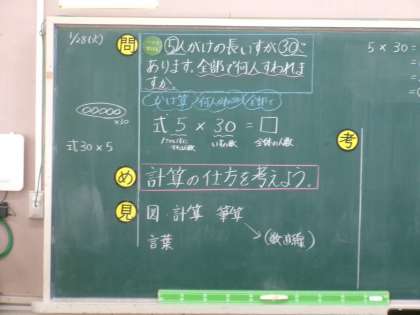 1/28(火)
問
5人がけの長いすが30こ
あります。全部で何人すわれま
すか。
かけ算
全部で
×30
式 5 × 30 = □
いすの数
全体の人数
式30×5
め
計算の仕方を考えよう。
見
図・計算 筆算
言葉
(数直線)
考
5 × 30 =
=